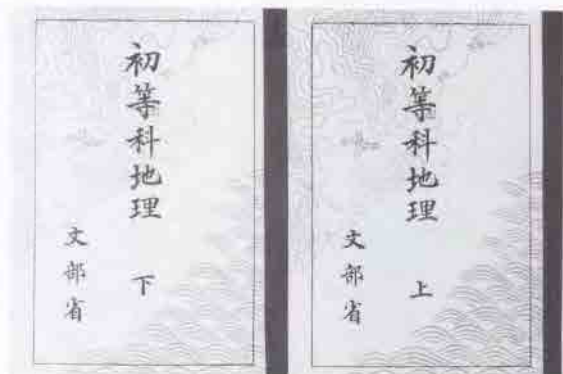 初等科地理
上
文部省
初等科地理
下
文部省